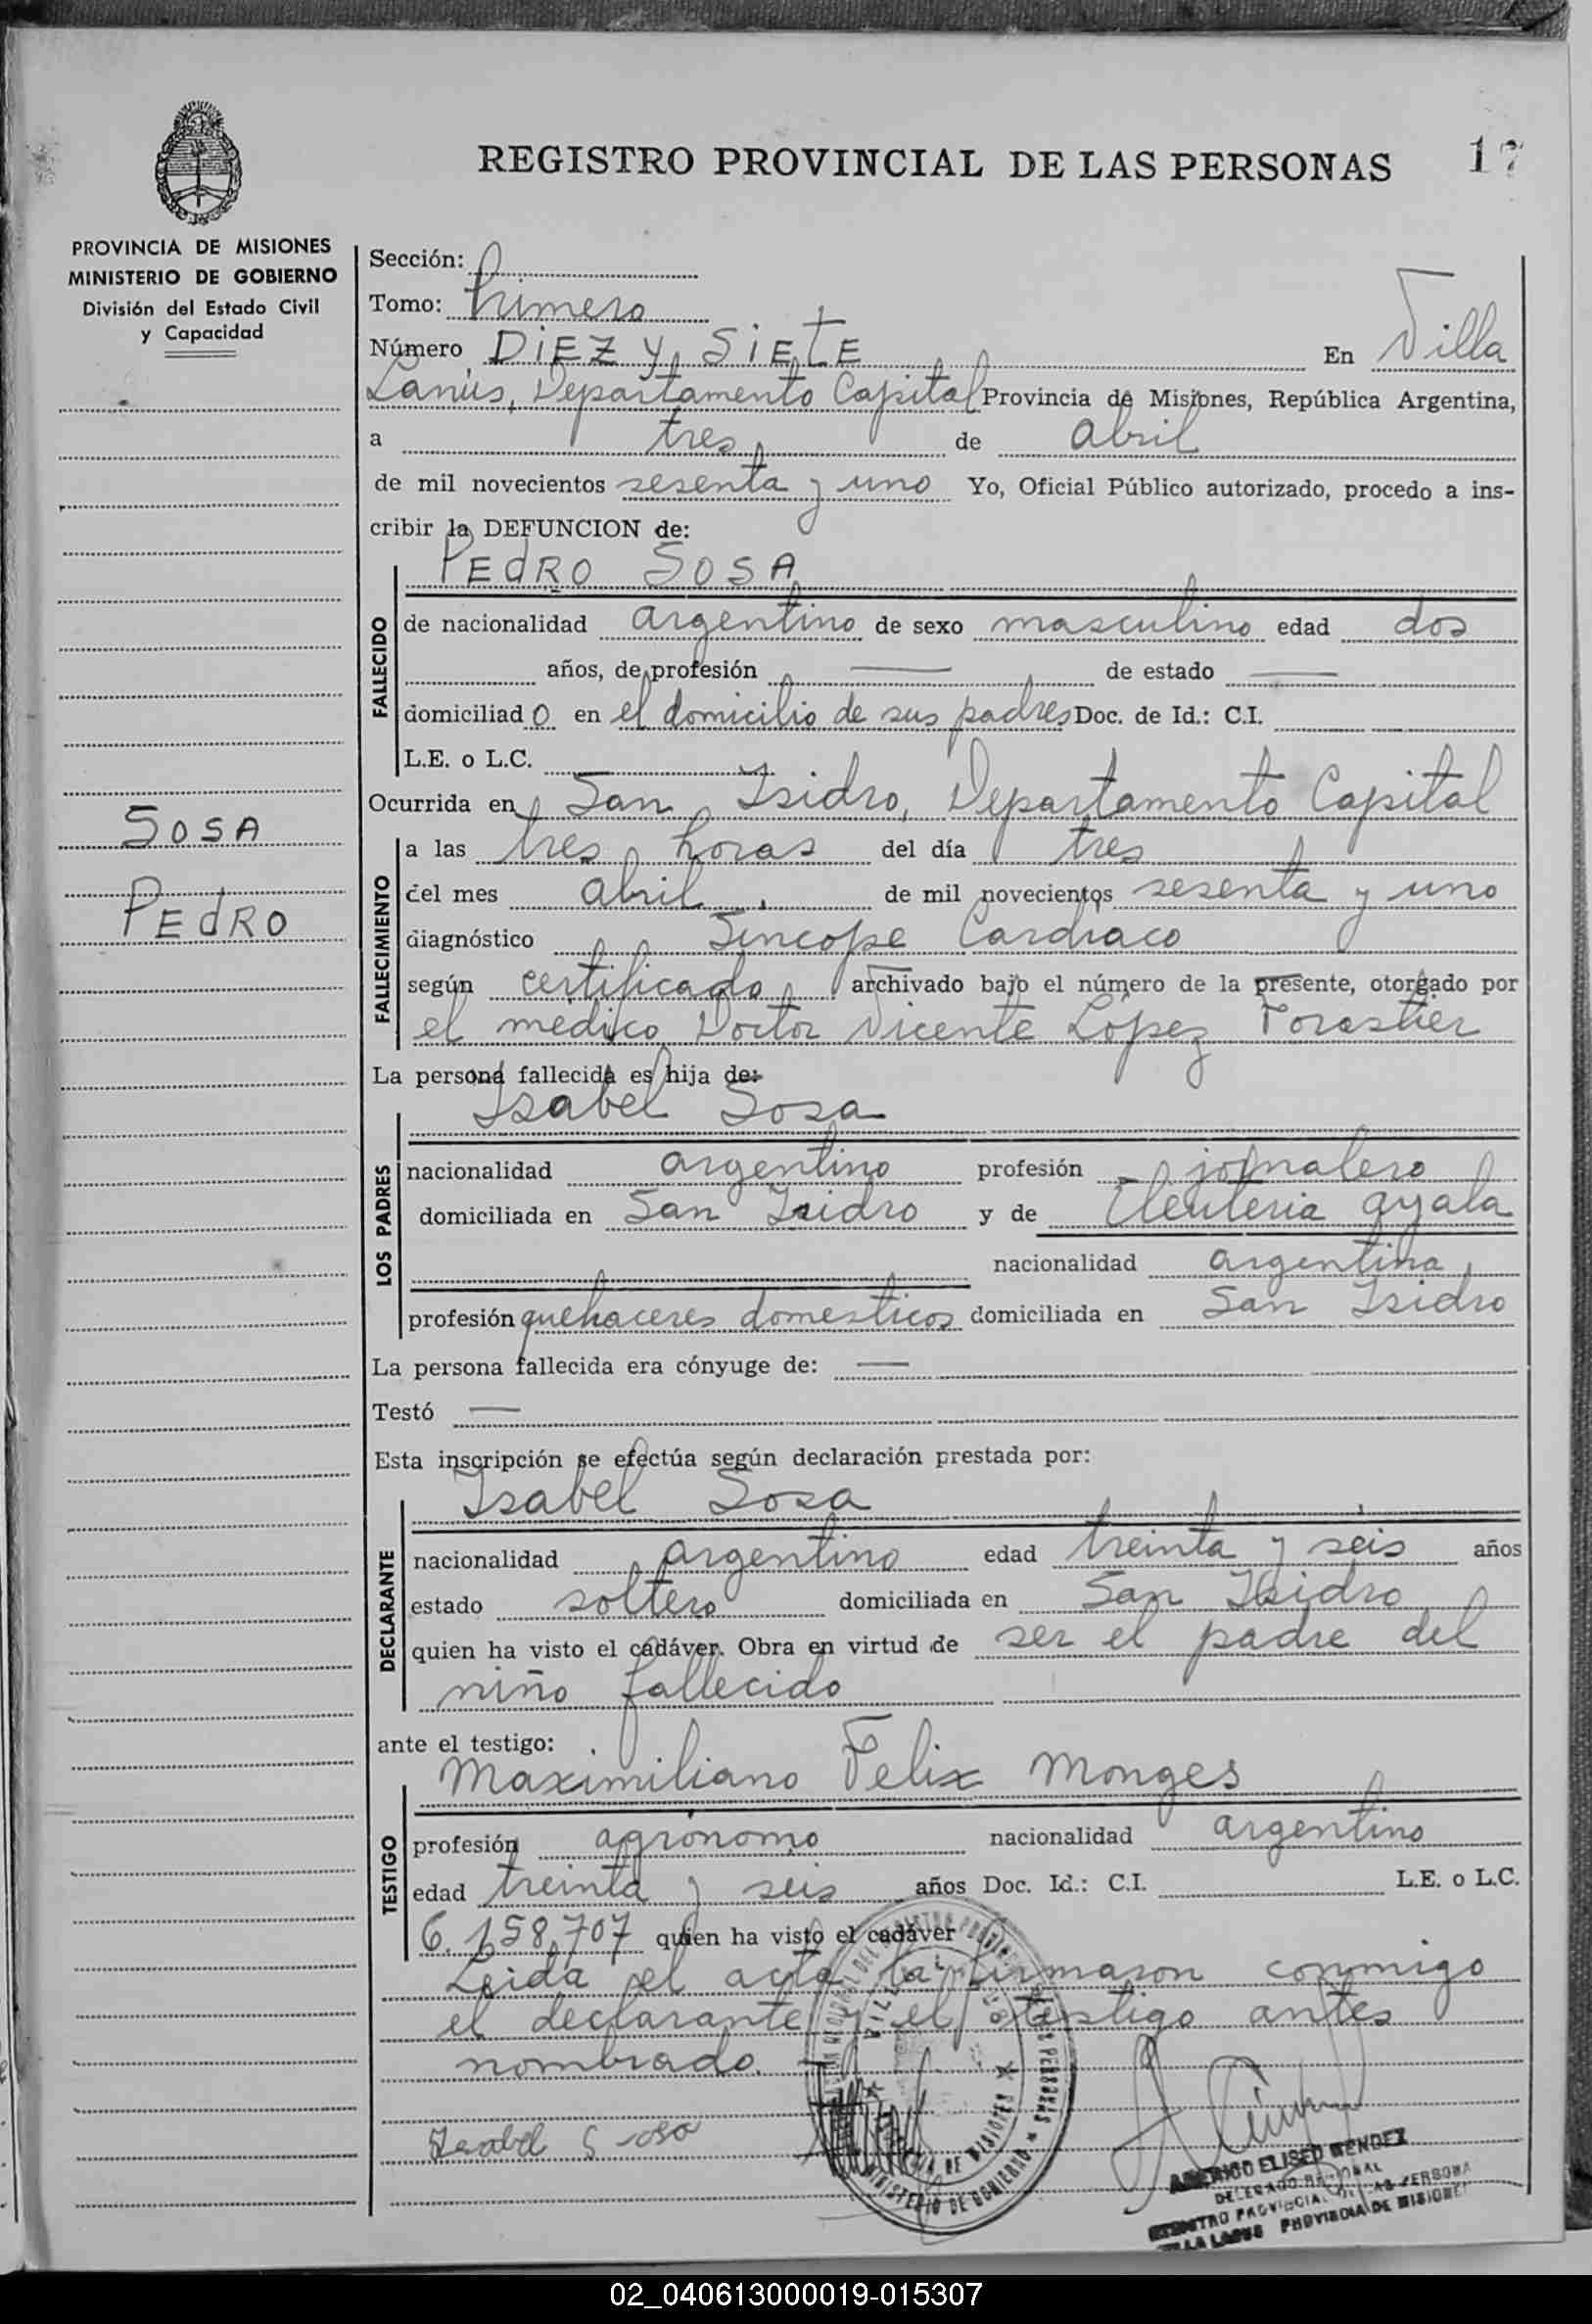 REGISTRO PROVINCIAL DE LAS PERSONAS 17
PROVINCIA DE MISIONES
MINISTERIO DE GOBIERNO
División del Estado Civil
y Capacidad
SOSA
PEdRO
Sección:
Tomo: Primero
Número DiEZ y SiETE En Villa
Lanús, Departamento Capital Provincia de Misiones, República Argentina,
a tres de abril
de mil novecientos sesenta y uno Yo, Oficial Público autorizado, procedo a ins-
cribir la DEFUNCION de:
PEdRO SOSA
FALLECIDO
de nacionalidad argentino de sexo masculino edad dos
años, de profesión — de estado —
domiciliado en el domicilio de sus padres Doc. de Id.: C.I.
L.E. o L.C.
Ocurrida en San Isidro, Departamento Capital
FALLECIMIENTO
a las tres horas del día tres
del mes abril de mil novecientos sesenta y uno
diagnóstico Sincope Cardiaco
según certificado archivado bajo el número de la presente, otorgado por
el medico Doctor Vicente López Forastier
La persona fallecida es hija de:
Isabel Sosa
LOS PADRES
nacionalidad argentino profesión jornalero
domiciliada en San Isidro y de Eleuteria ayala
nacionalidad argentina
profesión quehaceres domesticos domiciliada en San Isidro
La persona fallecida era cónyuge de: —
Testó —
Esta inscripción se efectúa según declaración prestada por:
Isabel Sosa
DECLARANTE
nacionalidad argentino edad treinta y seis años
estado soltero domiciliada en San Isidro
quien ha visto el cadáver. Obra en virtud de ser el padre del
niño fallecido
ante el testigo:
Maximiliano Felix Monges
TESTIGO
profesión agrónomo nacionalidad argentino
edad treinta y seis años Doc. Id.: C.I. L.E. o L.C.
6.158,707 quien ha visto el cadáver
Leida el acta la firmaron conmigo
el declarante y el testigo antes
nombrado.
Isabel Sosa
AMERICO ELISEO MENDEZ
DELEGADO REGIONAL
REGISTRO PROVINCIAL DE LAS PERSONA
VILLA LANUS PROVINCIA DE MISIONES
MINISTERIO DE GOBIERNO
02_040613000019-015307